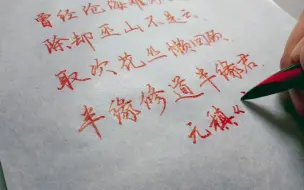 曾经沧海难
除却巫山不是云.
取次花丛懒回顾.
半缘修道半缘君.
元稹《